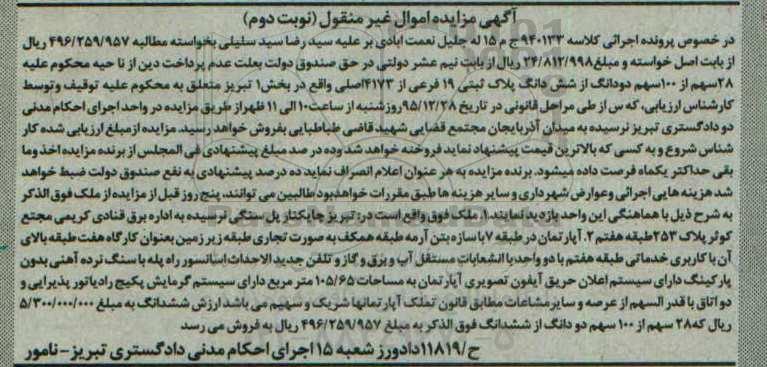 آگهی مزایده اموال غیر منقول (نوبت دوم)
در خصوص پرونده اجرائی کلاسه ۹۴۰۱۳۳ ج م ۱۵ له جلیل نعمت ابادی بر علیه سید رضا سید سلیلی بخواسته مطالبه ۴۹۶/۲۵۹/۹۵۷ ریال
از بابت اصل خواسته و مبلغ ۲۴/۸۱۲/۹۹۸ ریال از بابت نیم عشر دولتی در حق صندوق دولت بعلت عدم پرداخت دین از نا حیه محکوم علیه
۲۸سهم از ۱۰۰سهم دودانگ از شش دانگ پلاک ثبتی ۱۹ فرعی از ۴۱۷۳اصلی واقع در بخش۱ تبریز متعلق به محکوم علیه توقیف وتوسط
کارشناس ارزیابی، که س از طی مراحل قانونی در تاریخ ۹۵/۱۲/۲۸روزشنبه از ساعت۱۰ الی ۱۱ ظهراز طریق مزایده در واحد اجرای احکام مدنی
دو دادگستری تبریز نرسیده به میدان آذربایجان مجتمع قضایی شهید قاضی طباطبایی بفروش خواهد رسید. مزایده ازمبلغ ارزیابی شده کار
شناس شروع و به کسی که بالاترین قیمت پیشنهاد نماید فروخته خواهد شد وده در صد مبلغ پیشنهادی فی المجلس از برنده مزایده اخذ وما
بقی حداکثر یکماه فرصت داده میشود. برنده مزایده به هر عنوان اعلام انصراف نماید ده درصد پیشنهادی به نفع صندوق دولت ضبط خواهد
شد هزینه هایی اجرائی وعوارض شهرداری و سایر هزینه ها طبق مقررات خواهدبود طالبین می توانند، پنج روز قبل از مزایده از ملک فوق الذکر
به شرح ذیل با هماهنگی این واحد بازدید نمایند ۱. ملک فوق واقع است در: تبریز چایکنار پل سنگی نرسیده به اداره برق قنادی کریمی مجتع
کوثر پلاک ۲۵۳طبقه هفتم ۲. آپارتمان در طبقه ۷با سازه بتن آرمه طبقه همکف به صورت تجاری طبقه زیر زمین بعنوان کارگاه هفت طبقه بالای
آن با کاربری خدماتی طبقه هفتم با دو واحدبا انشعابات مستقل آب و برق و گاز و تلفن جدید الاحداث اسانسور راه پله با سنگ نرده آهنی بدون
پارکینگ دارای سیستم اعلان حریق آیفون تصویری آپارتمان به مساحات ۱۰۵/۶۵ متر مربع دارای سیستم گرمایش پکیج رادیاتور پذیرایی و
دو اتاق با قدر السهم از عرصه و سایر مشاعات مطابق قانون تملک آپارتمانها شریک و سهیم می باشد ارزش ششدانگ به مبلغ ۵/۳۰۰/۰۰۰/۰۰۰
ریال که۲۸ سهم از ۱۰۰ سهم دو دانگ از ششدانگ فوق الذکر به مبلغ ۴۹۶/۲۵۹/۹۵۷ ریال به فروش می رسد
ح/۱۱۸۱۹دادورز شعبه ۱۵ اجرای احکام مدنی دادگستری تبریز-نامور